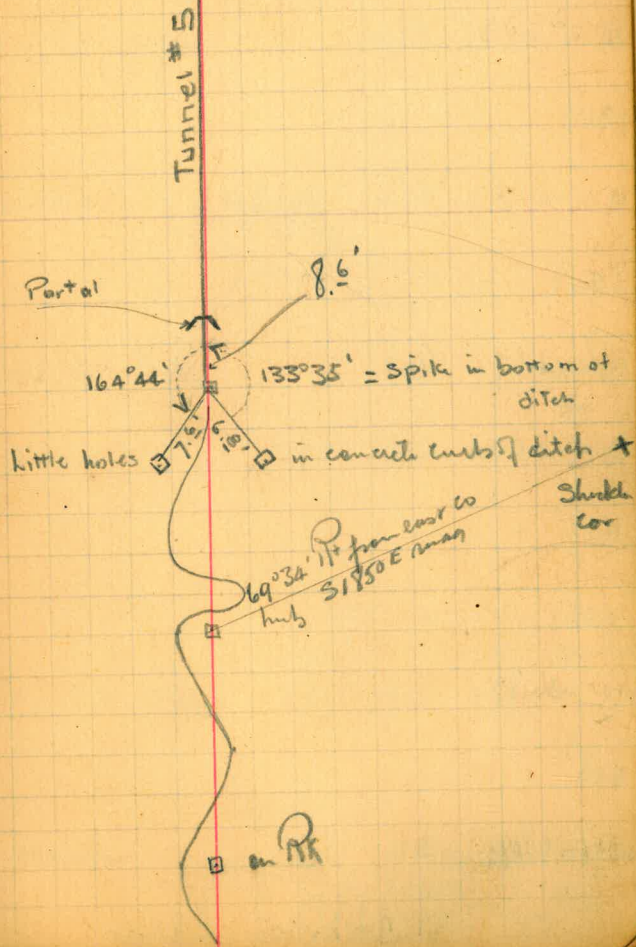 Tunnel # 5
8.6'
Portal
164°44'
133°35' = spike in bottom of
ditch
7.5'
6.8'
Little holes
in concrete curbs of ditch
Cor
69°34' Rt from east
hub
on RK